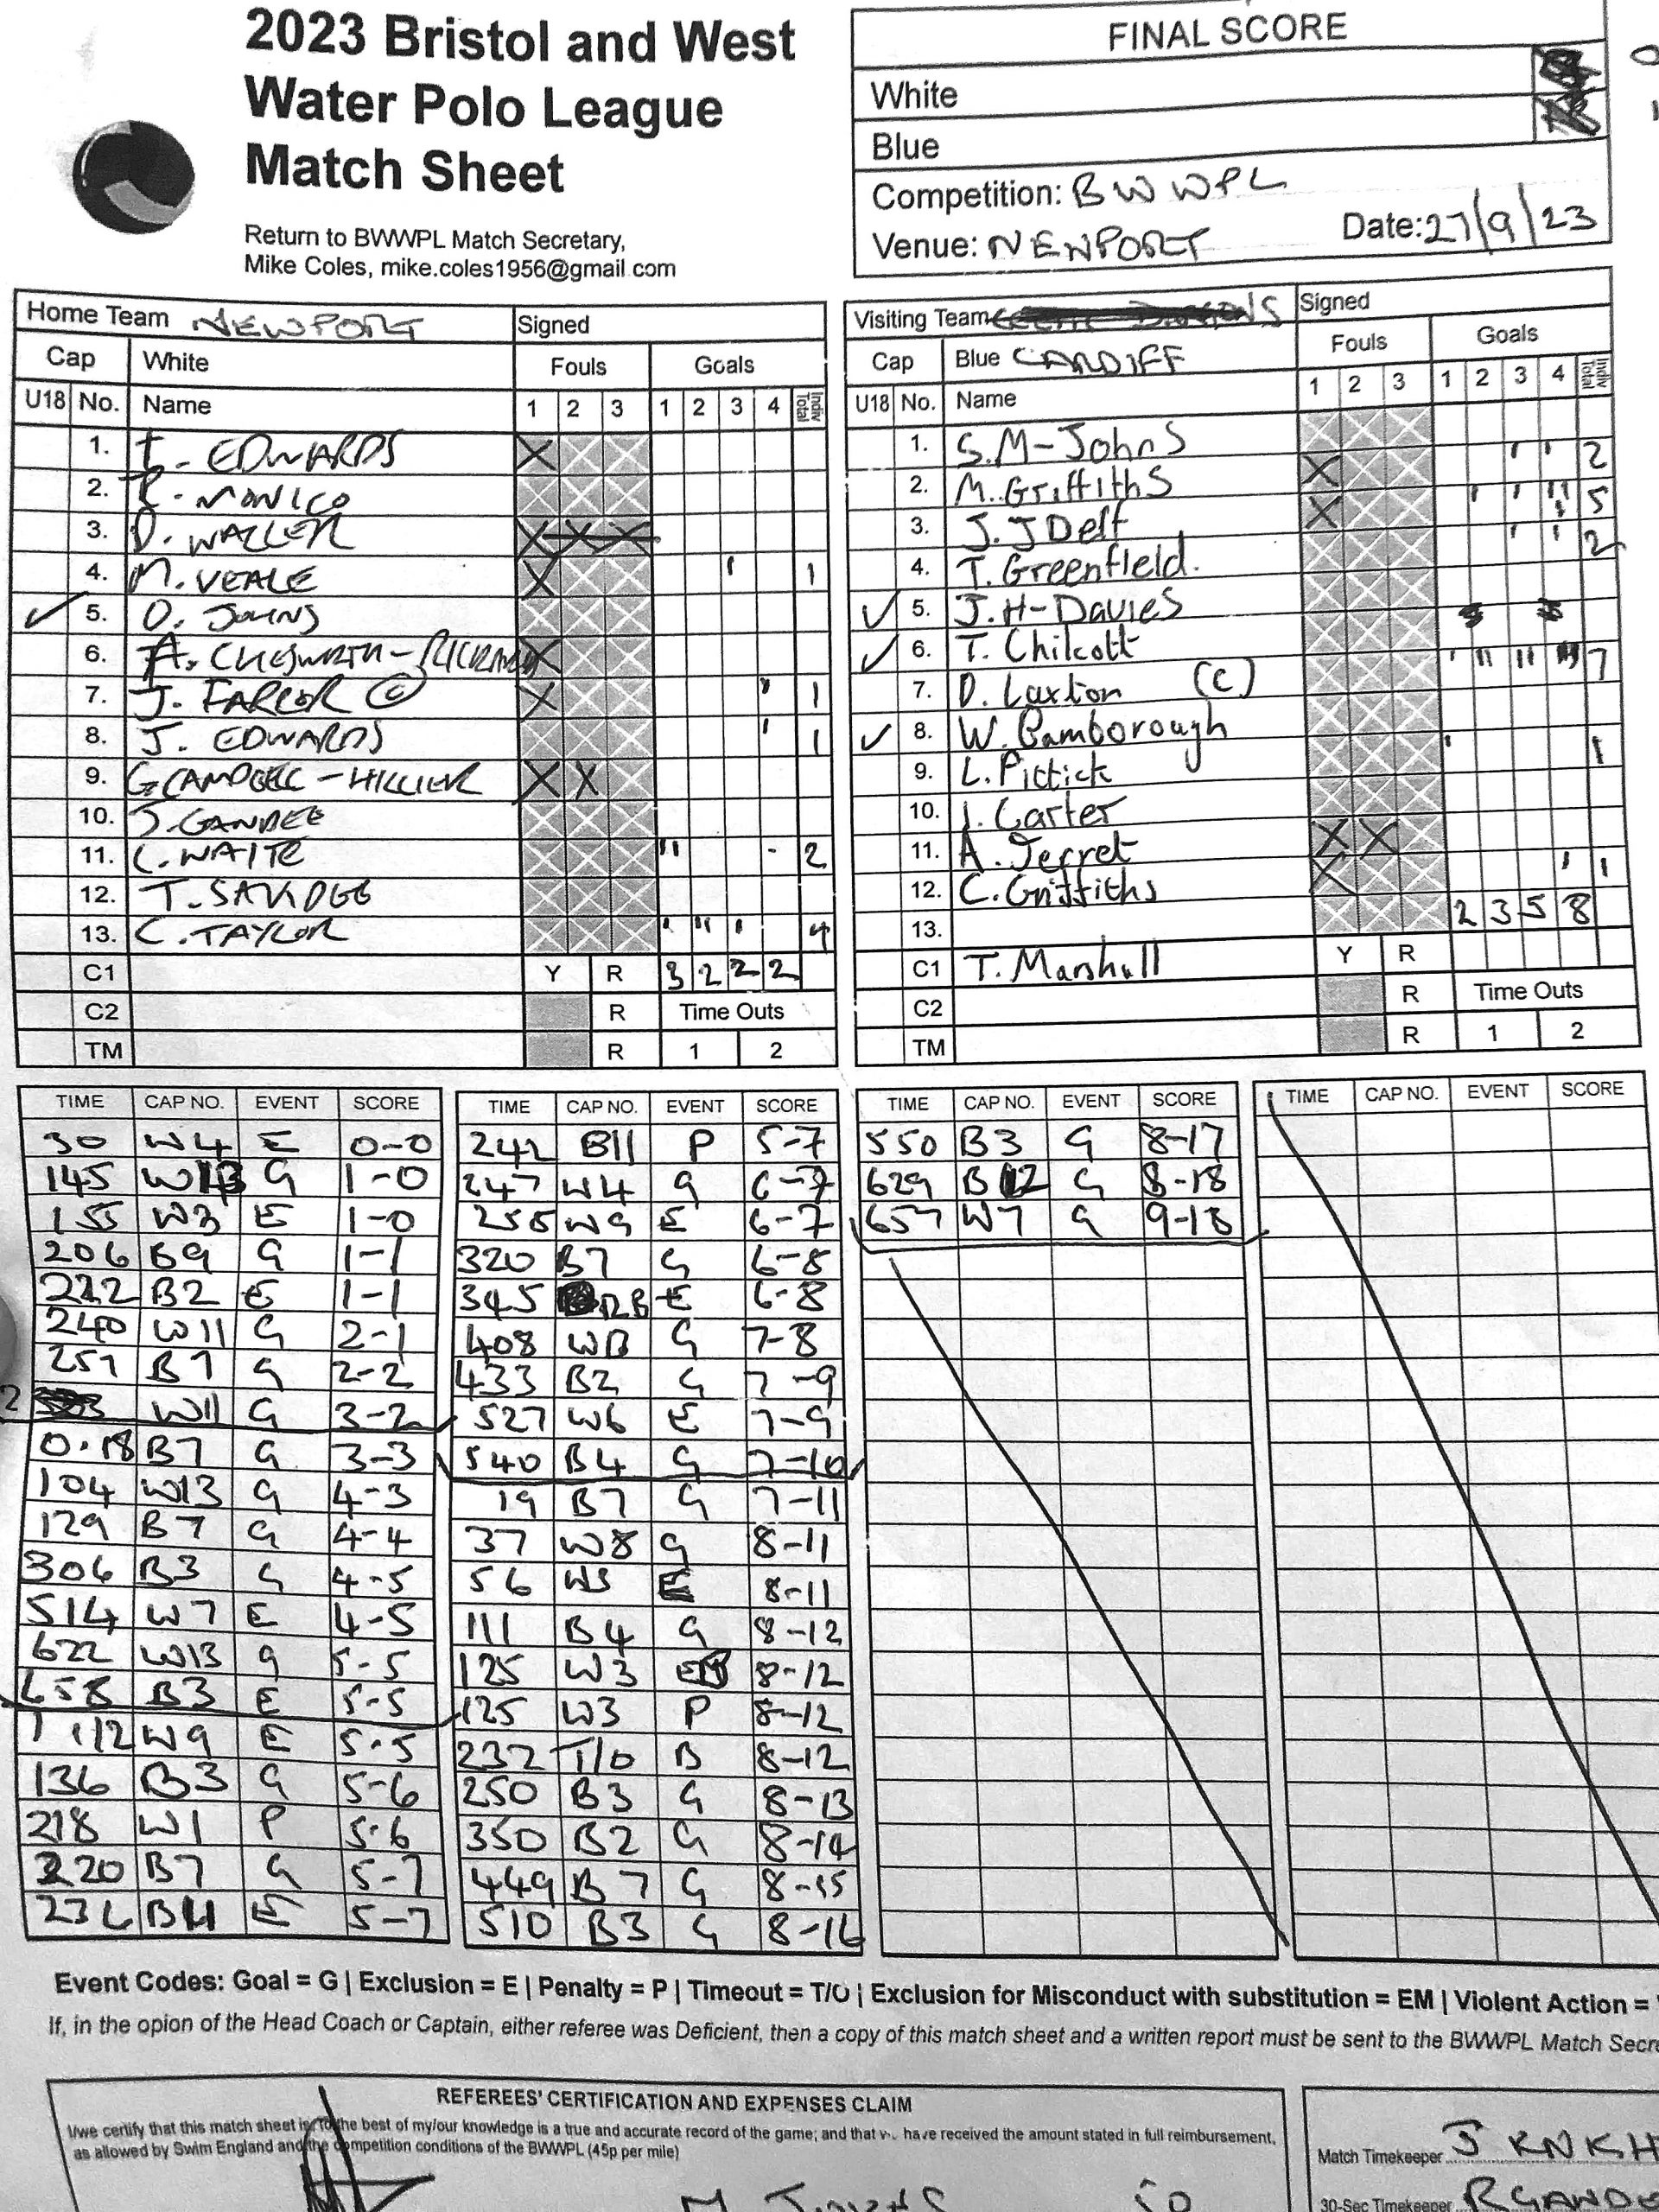 2023 Bristol and West
Water Polo League
Match Sheet
Return to BWWPL Match Secretary,
Mike Coles, mike.coles1956@gmail.com
FINAL SCORE
White
Blue
Competition: BWWPL
Venue: NEWPORT Date: 27/9/23
Home Team NEWPORT Signed
Cap White Fouls Goals
U18 No. Name 1 2 3 1 2 3 4 Indiv Total
1. EDWARDS X
2. R. MONICO
3. D. WALLER X X X
4. M. VEALE X ' 1
✓ 5. O. JOHNS
6. A. CHESWORTH- X
7. J. FARLOR (C) X ' 1
8. J. EDWARDS ' 1
9. G CAMPBELL - HILLIER X X
10. J. GANDEE
11. C. WAITE '' - 2
12. T. SAVIDGE
13. C. TAYLOR ' '' ' 4
C1 Y R 3 2 2 2
C2 R Time Outs
TM R 1 2
Visiting Team Signed
Cap Blue CARDIFF Fouls Goals
U18 No. Name 1 2 3 1 2 3 4 Indiv Total
1. S.M-Johns
2. M. Griffiths X ' ' 2
3. J. J Delf X ' ' ''' 5
4. T. Greenfield. ' ' 2
✓ 5. J. H-Davies
✓ 6. T. Chilcott
7. D. Laxton (C) ' '' '' 7
✓ 8. W. Bamborough
9. L. Pittick ' 1
10. J. Carter
11. A. Jerret X X
12. C. Griffiths X ' 1
13. 2 3 5 8
C1 T. Marshall Y R
C2 R Time Outs
TM R 1 2
TIME CAP NO. EVENT SCORE
30 W4 E 0-0
145 W13 G 1-0
155 W3 E 1-0
206 B9 G 1-1
222 B2 E 1-1
240 W11 G 2-1
257 B7 G 2-2
W11 G 3-2
0.18 B7 G 3-3
104 W13 G 4-3
129 B7 G 4-4
306 B3 G 4-5
514 W7 E 4-5
622 W13 G 5-5
658 B3 E 5-5
112 W9 E 5-5
136 B3 G 5-6
218 W1 P 5-6
220 B7 G 5-7
236 B11 E 5-7
TIME CAP NO. EVENT SCORE
242 B11 P 5-7
247 W4 G 6-7
255 W9 E 6-7
320 B7 G 6-8
345 12B E 6-8
408 W13 G 7-8
433 B2 G 7-9
527 W6 E 7-9
540 B4 G 7-10
19 B7 G 7-11
37 W8 G 8-11
56 W3 E 8-11
111 B4 G 8-12
125 W3 E 8-12
125 W3 P 8-12
232 T/O B 8-12
250 B3 G 8-13
350 B2 G 8-14
449 B7 G 8-15
510 B3 G 8-16
TIME CAP NO. EVENT SCORE
550 B3 G 8-17
629 B12 G 8-18
657 W7 G 9-18
TIME CAP NO. EVENT SCORE
Event Codes: Goal = G | Exclusion = E | Penalty = P | Timeout = T/O | Exclusion for Misconduct with substitution = EM | Violent Action =
If, in the opion of the Head Coach or Captain, either referee was Deficient, then a copy of this match sheet and a written report must be sent to the BWWPL Match
REFEREES' CERTIFICATION AND EXPENSES CLAIM
I/we certify that this match sheet is to the best of my/our knowledge is a true and accurate record of the game; and that have received the amount stated in full reimbursement,
as allowed by Swim England and the competition conditions of the BWWPL (45p per mile)
Match Timekeeper J
30-Sec Timekeeper